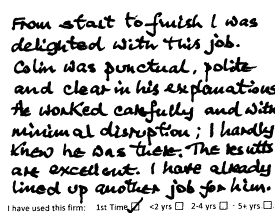 From start to finish I was
delighted with this job.
Colin was punctual, polite
and clear in his explanations
He worked carefully and with
minimal disruption; I hardly
knew he was there. The results
are excellent. I have already
lined up another job for him.
I have used this firm: 1st Time ☑ <2 yrs ☐ 2-4 yrs ☐ 5+ yrs ☐